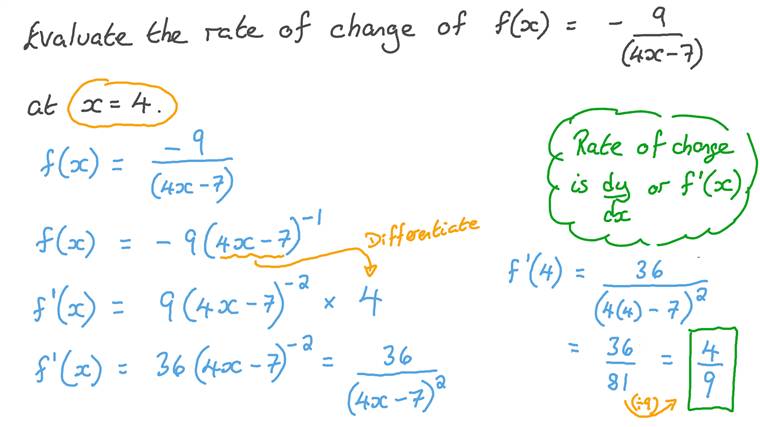 Evaluate the rate of change of f(x) = - 9/(4x-7)
at x = 4.
f(x) = -9/(4x-7)
f(x) = -9(4x-7)^-1
Differentiate
f'(x) = 9(4x-7)^-2 × 4
f'(x) = 36(4x-7)^-2 = 36/(4x-7)^2
Rate of change
is dy/dx or f'(x)
f'(4) = 36/(4(4)-7)^2
= 36/81 = 4/9
(÷9)